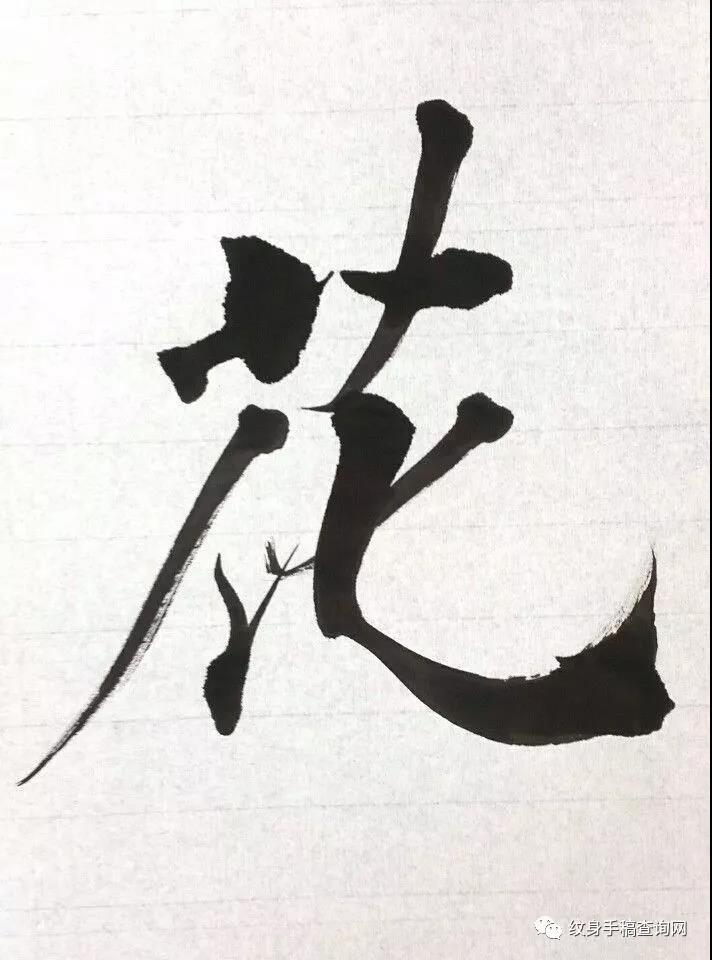 花
纹身手稿查询网